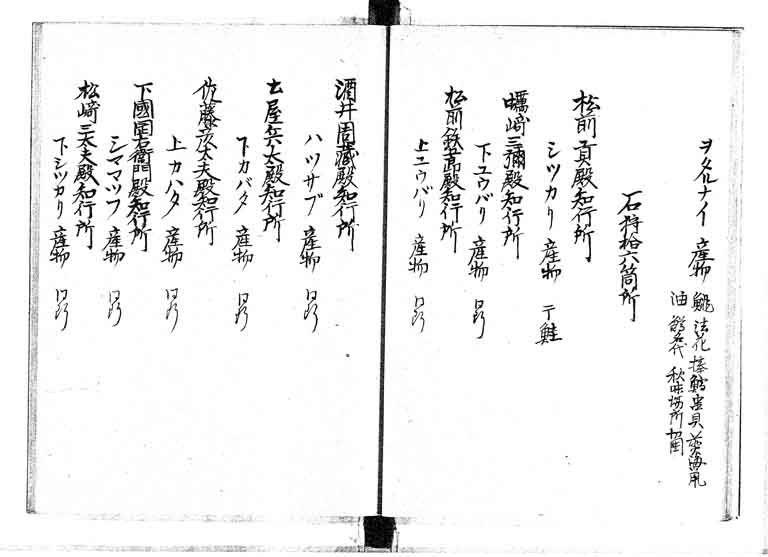 ヲタルナイ 産物 鯡
油
秋味場所
石狩拾六箇所
松前貢殿知行所
シツカリ 産物 干鮭
蠣崎三彌殿知行所
下ユウバリ 産物 同断
松前鉄五郎殿知行所
上ユウバリ 産物 同断
酒井周蔵殿知行所
ハツサブ 産物 同断
土屋兵太殿知行所
下カバタ 産物 同断
佐藤彦太夫殿知行所
上カハタ 産物 同断
下國岡右衛門殿知行所
シママツフ 産物 同断
松崎三太夫殿知行所
下シツカリ 産物 同断